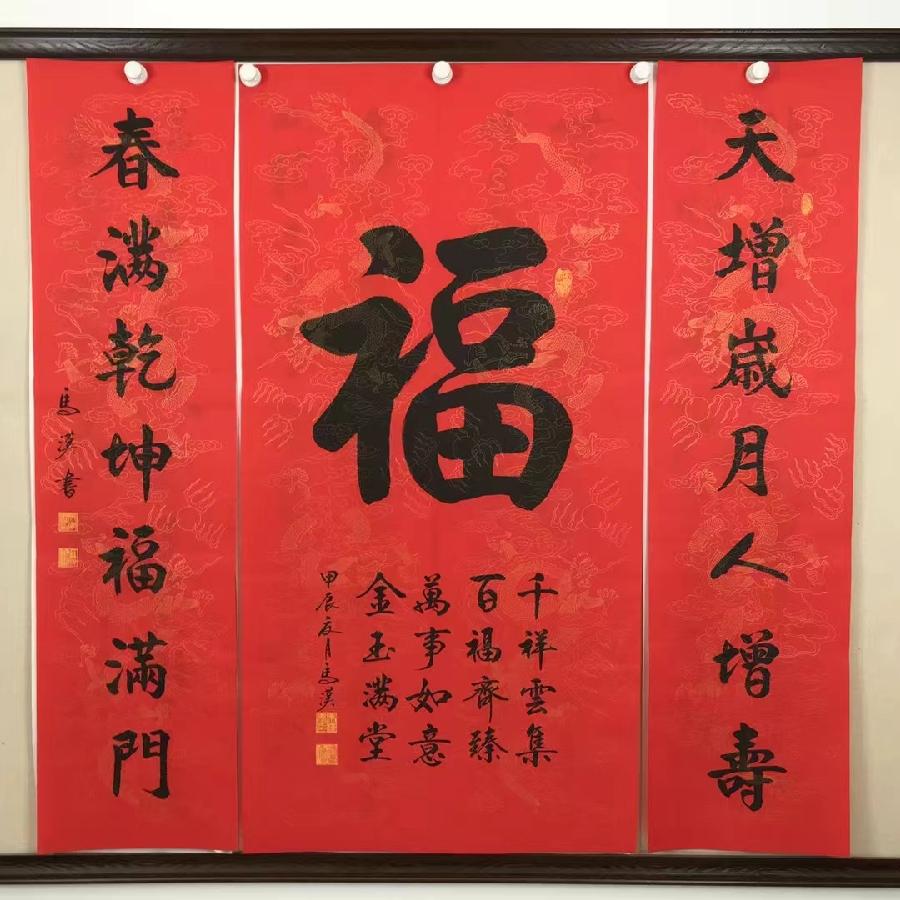 天增歲月人增壽
福
千祥雲集
百福齊臻
萬事如意
金玉满堂
甲辰夏月馬漢
春满乾坤福滿門
馬漢書